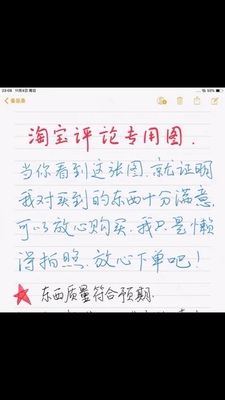 淘宝评论专用图.
当你看到这张图.就证明
我对买到的东西十分满意,
可以放心购买.我只是懒
得拍照.放心下单吧!
东西质量符合预期.